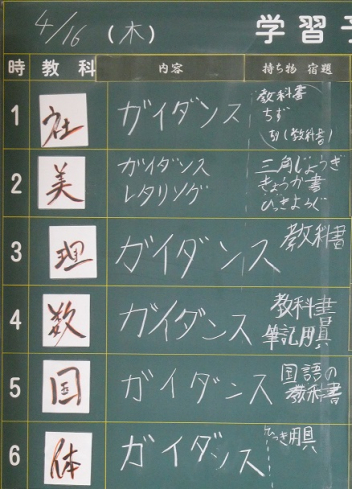 4/16 (木) 学習
時 教科 内容 持ち物 宿題
1 社 ガイダンス 教科書
ちず
(教科書)
2 美 ガイダンス
レタリング
三角じょうぎ
きょうか書
ひっきようぐ
3 理 ガイダンス 教科書
4 数 ガイダンス 教科書
筆記用具
5 国 ガイダンス 国語の
教科書
6 体 ガイダンス ひっき用具